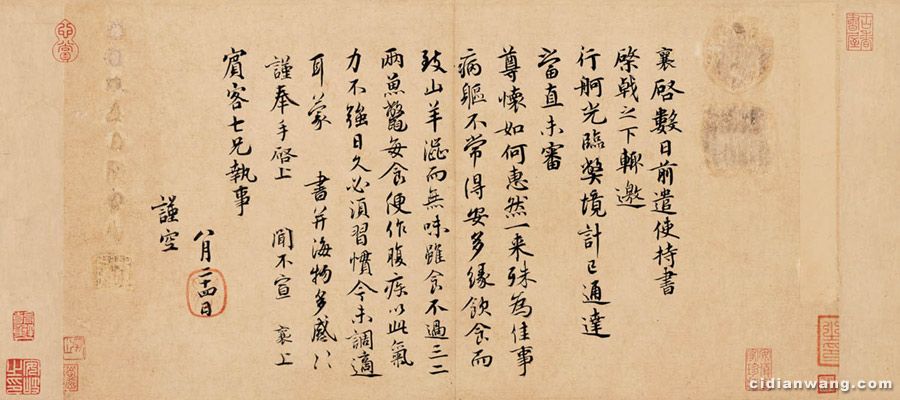 襄啓數日前遣使持書
棨戟之下輙邀
行舸光臨獘境計已通達
當直未審
尊懷如何惠然一来殊為佳事
病軀不常得安多緣飲食而
致山羊澁而無味雖食不過三二
兩魚鱉每食便作腹疾以此氣
力不強日久必須習慣今未調適
耳蒙 書并海物多感〻
謹奉手啓上 聞不宣 襄上
賓客七兄執事
八月二十四日
謹空
cidianwang.com